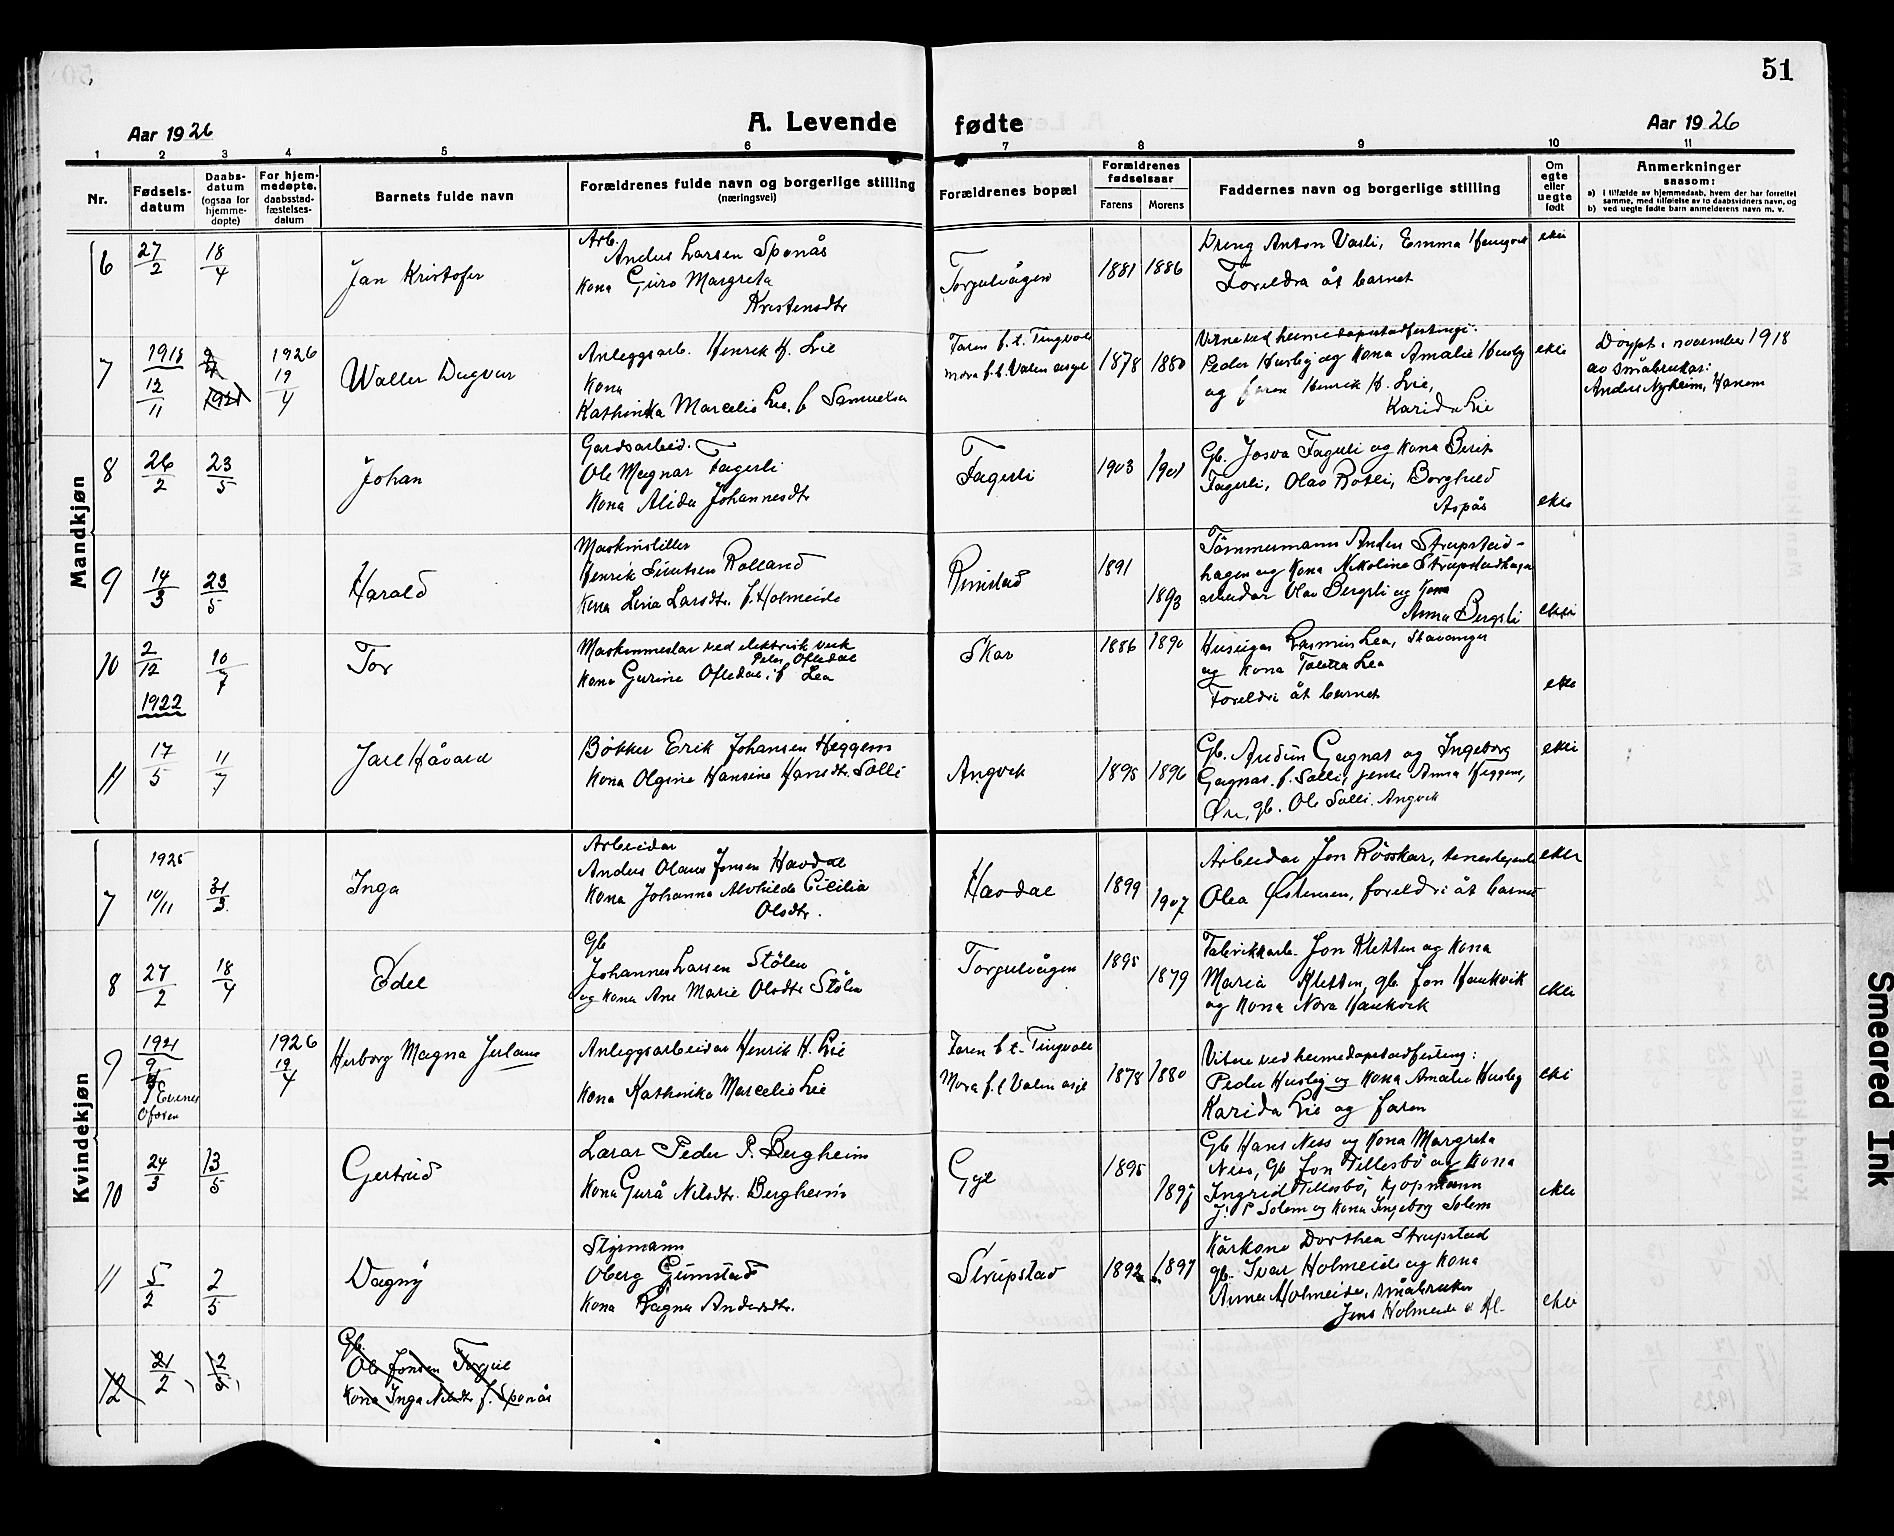 51
Aar 1926
A. Levende fødte
Aar 1926
1 2 3 4 5 6 7 8 9 10 11
Nr.
Fødsels-
datum
Daabs-
datum
(ogsaa for
hjemme-
døpte)
For hjem-
medøpte.
daabsstad-
fæstelses-
datum
Barnets fulde navn
Forældrenes fulde navn og borgerlige stilling
(næringsvei)
Forældrenes bopæl
Forældrenes
fødselsaar
Farens Morens
Faddernes navn og borgerlige stilling
Om
egte
eller
uegte
født
Anmerkninger
saasom:
a) i tilfælde av hjemmedaab, hvem der har forrettet
samme, med tilføielse av to daabsvidners navn, og
b) ved uegte fødte barn anmelderens navn m. v.
Mandkjøn
6
27/2
18/4
Jan Kristofer
Arb.
Anders Larsen Sponås
Kona Guro Margreta
Kristensdtr
Torjulvågen
1881 1886
Dreng Anton Vasli, Emma
Foreldra åt barnet
ekte
7
1918
12/11
1926
19/4
Walter Dagvar
Anleggsarb. Henrik H. Lie
Kona
Kathinka Marcelie Lie, f. Samuelsen
Faren f. t. Tingvoll
Mora f. t. Valen
1878 1880
Vitne ved heimedåpstadfestingi:
Peder Husby og Kona Amalie Husby
og faren Henrik H. Lie,
Karida Lie
ekte
Døypt i november 1918
av småbrukar:
Anders Nyheim, Hanem
8
26/2
23/5
Johan
Gardsarbeid.
Ole Magnar Fagerli
Kona Alida Johannesdtr
Fagerli
1903 1901
Gb. Josva Fagerli og Kona Berit
Fagerli, Olav Rotli, Borghild
Aspås
ekte
9
14/3
23/5
Harald
Maskinstiller
Henrik Sivertsen Rolland
Kona Lina Larsdtr. f. Holmeide
Rimstad
1891
1893
Tømmermann Anders Strupstad-
hagen og Kona Nikolina Strupstadhagen
arbeidar Olav Bergsli og Kona
Anna Bergsli
ekte
10
2/12
1922
10/7
Tor
Maskinmester ved elektrisk verk
Peter Oftedal
Kona Gurine Oftedal, f. Lea
Skar
1886 1890
Huseigar Rasmus Lea, Stavanger
og Kona Taletta Lea
Foreldri åt barnet
ekte
11
17/5
11/7
Jarl Håvard
Bøkker Erik Johansen Heggem
Kona Olgine Hansine Hansdtr. Solli
Angvik
1895 1896
Gb. Audun Gagnat og Ingeborg
Gagnat f. Solli, jente Anna Heggem,
Øre, gb. Ole Solli, Angvik
ekte
Kvindekjøn
7
1925
10/11
31/3
Inga
Arbeidar
Anders Olaus Jonsen Havdal
Kona Johanna Alvhilde Cicilia
Olsdtr.
Havdal
1899
1907
Arbeidar Jon Røsskar, tenestejente
Olea Østensen, foreldri åt barnet
ekte
8
27/2
18/4
Edel
Gb
Johannes Larsen Stølen
og Kona Ane Marie Olsdtr Stølen
Torjulvågen
1895
1879
Fabrikkarb. Jon Kletten og Kona
Maria Kletten, gb. Jon Haukvik
og Kona Nora Haukvik
ekte
9
1921
9/4
i Evenes
Ofoten
1926
19/4
Herborg Magna Jorlaug
Anleggsarbeidar Henrik H. Lie
Kona Kathinka Marcelie Lie
Faren f. t. Tingvoll
Mora f. t. Valen
1878 1880
Vitne ved heimedåpstadfesting:
Peder Husby og Kona Amalie Husby
Karida Lie og faren
ekte
10
24/3
13/5
Gertrud
Lærar Peder P. Bergheim
Kona Gurå Nilsdtr. Bergheim
Gyl
1895
1897
Gb Hans Ness og Kona Margreta
Ness, Gb Jon Tillesbø og Kona
Ingrid Tillesbø, kjøpmann
J. P Solem og Kona Ingeborg Solem
ekte
11
5/2
2/5
Dagny
Styrmann
Oberg Gimstad
Kona Ragna Andersdtr.
Strupstad
1892 1897
Kårkone Dorthea Strupstad
gb. Ivar Holmeide og Kona
Anna Holmeide, småbruker
Jens Holmeide
ekte
12
21/2
2/5
Gb.
Ole Jonsen Torjul
Kona Inga Nilsdtr f. Sponås
Smeared Ink